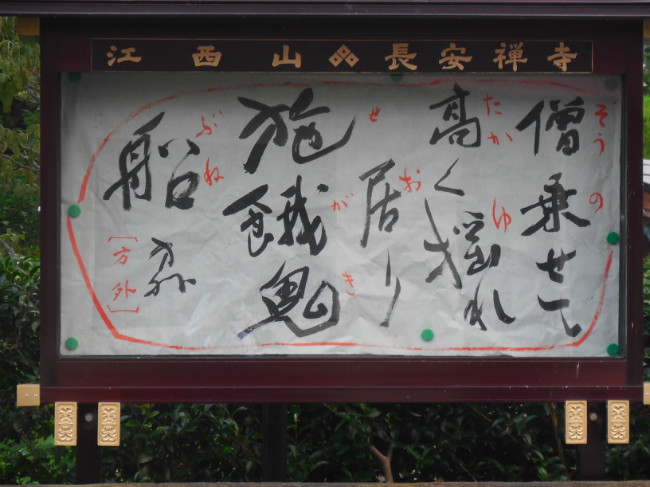 江西山 長安禅寺
僧乗せて
そう の
高く揺れ
たか ゆ
居り
お
施餓鬼
せ が き
船
ぶね
[方外]